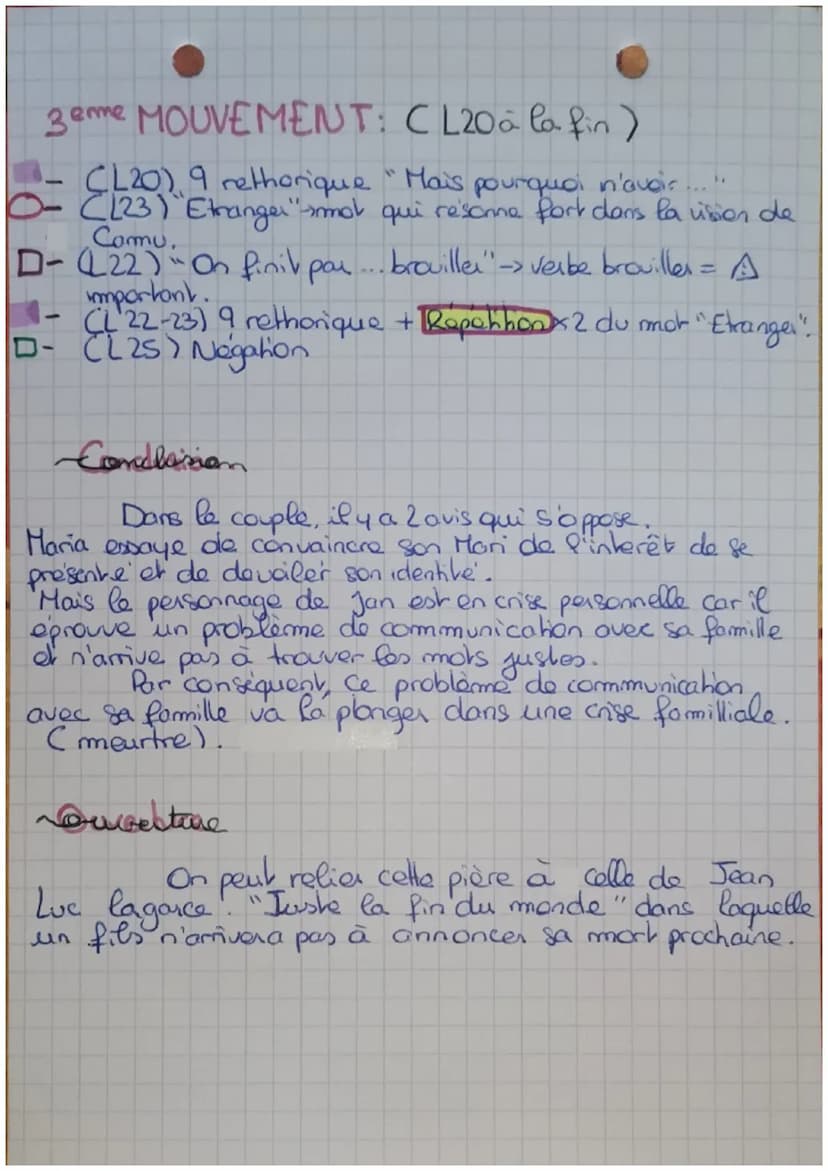 3eme MOUVEMENT: (L20 à la fin)
- (L20) q rethorique "Mais pourquoi n'avoir..."
- (L23) "Etranger"→mot qui résonne fort dans la vision de
Camu.
- (L22) "On finit par ... brouiller" → verbe brouiller = ⚠
important.
- (L 22-23) q rethorique + Répétition x2 du mot "Etranger".
- (L25) Négation
Conclusion
Dans le couple, il y a 2 avis qui s'oppose.
Maria essaye de convaincre son Mari de l'interêt de se
présenté et de dévoiler son identité.
Mais le personnage de Jan est en crise personnelle car il
éprouve un problème de communication avec sa famille
et n'arrive pas à trouver les mots justes.
Par conséquent, ce problème de communication
avec sa famille va la plonger dans une crise familliale.
(meurtre).
Ouverture
On peut relier cette pière à celle de Jean
Luc lagarce. "Juste la fin du monde" dans laquelle
un fils n'arrivera pas à annoncer sa mort prochaine.